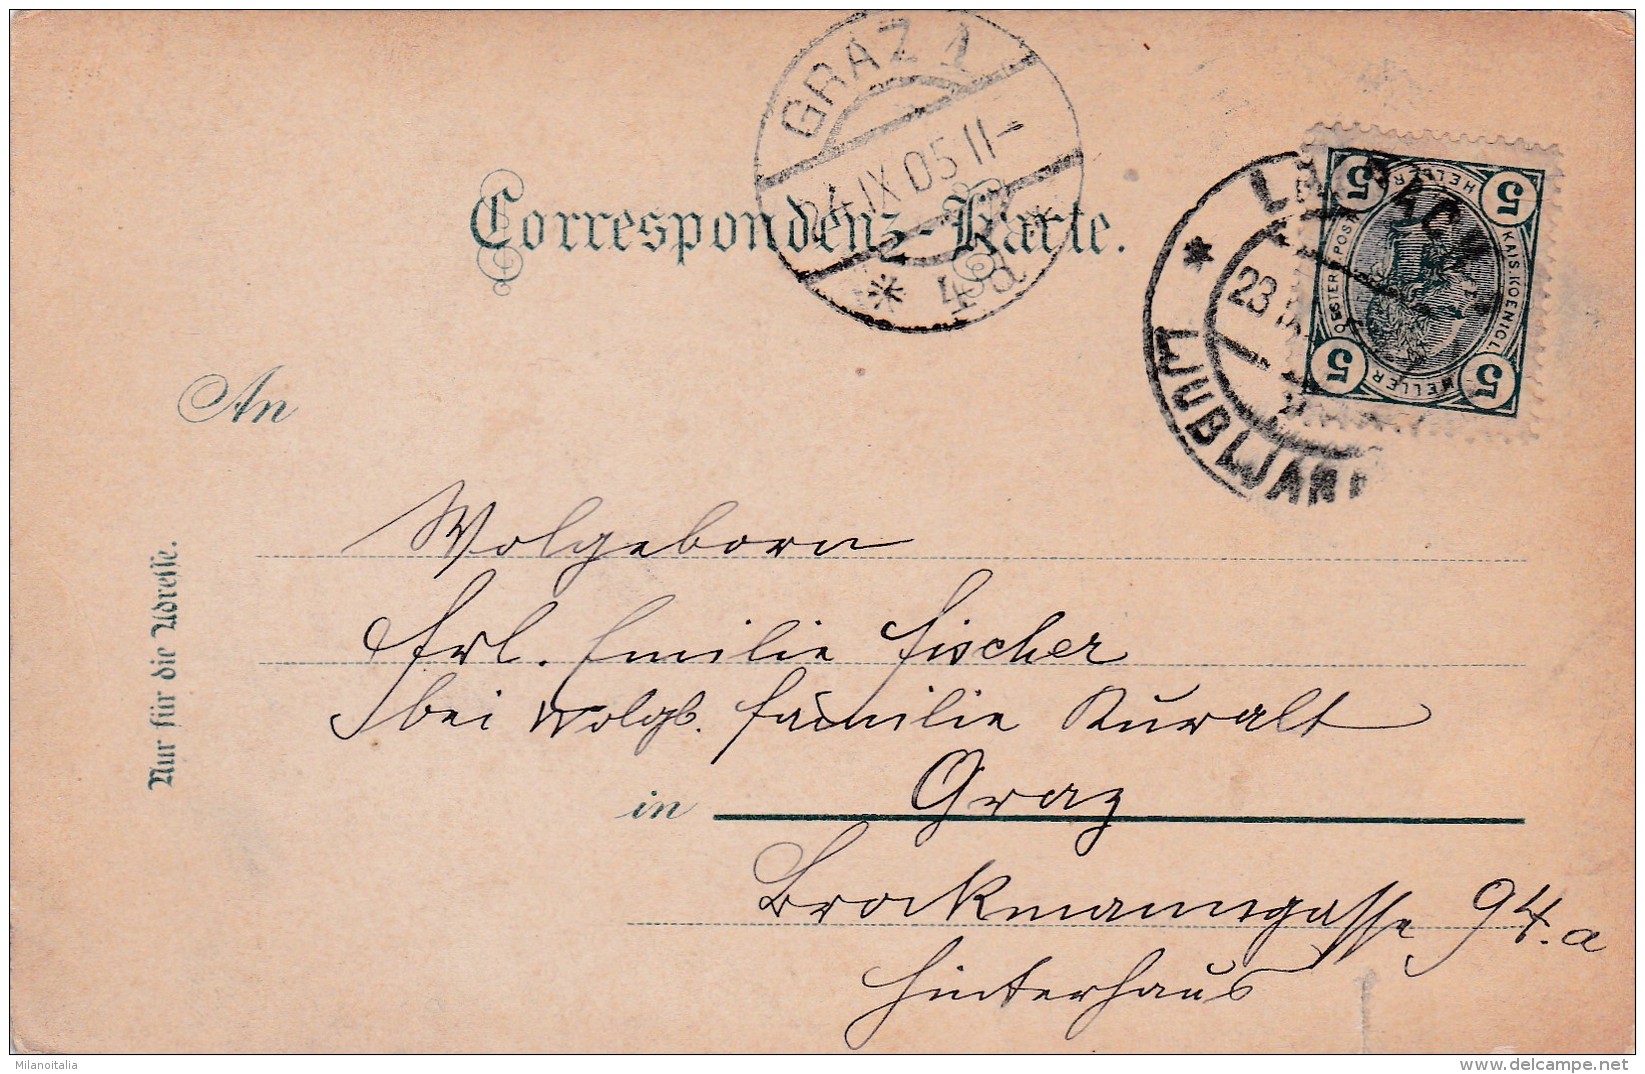 GRAZ 1
24 IX 05 11-
* 4d *
Correspondenz-Karte.
LAIBACH
23 IX
LJUBLJANA
5 5
HELLER HELLER
KAIS. KOENIGL.
OESTERR. POST
5 5
An
Wolgeborn
Frl. Emilie Fischer
bei Wolgb. Familie Kuralt
in Graz
Brockmanngasse 94.a
Hinterhaus
Nur für die Adresse.
Milanoitalia
delcampe.net